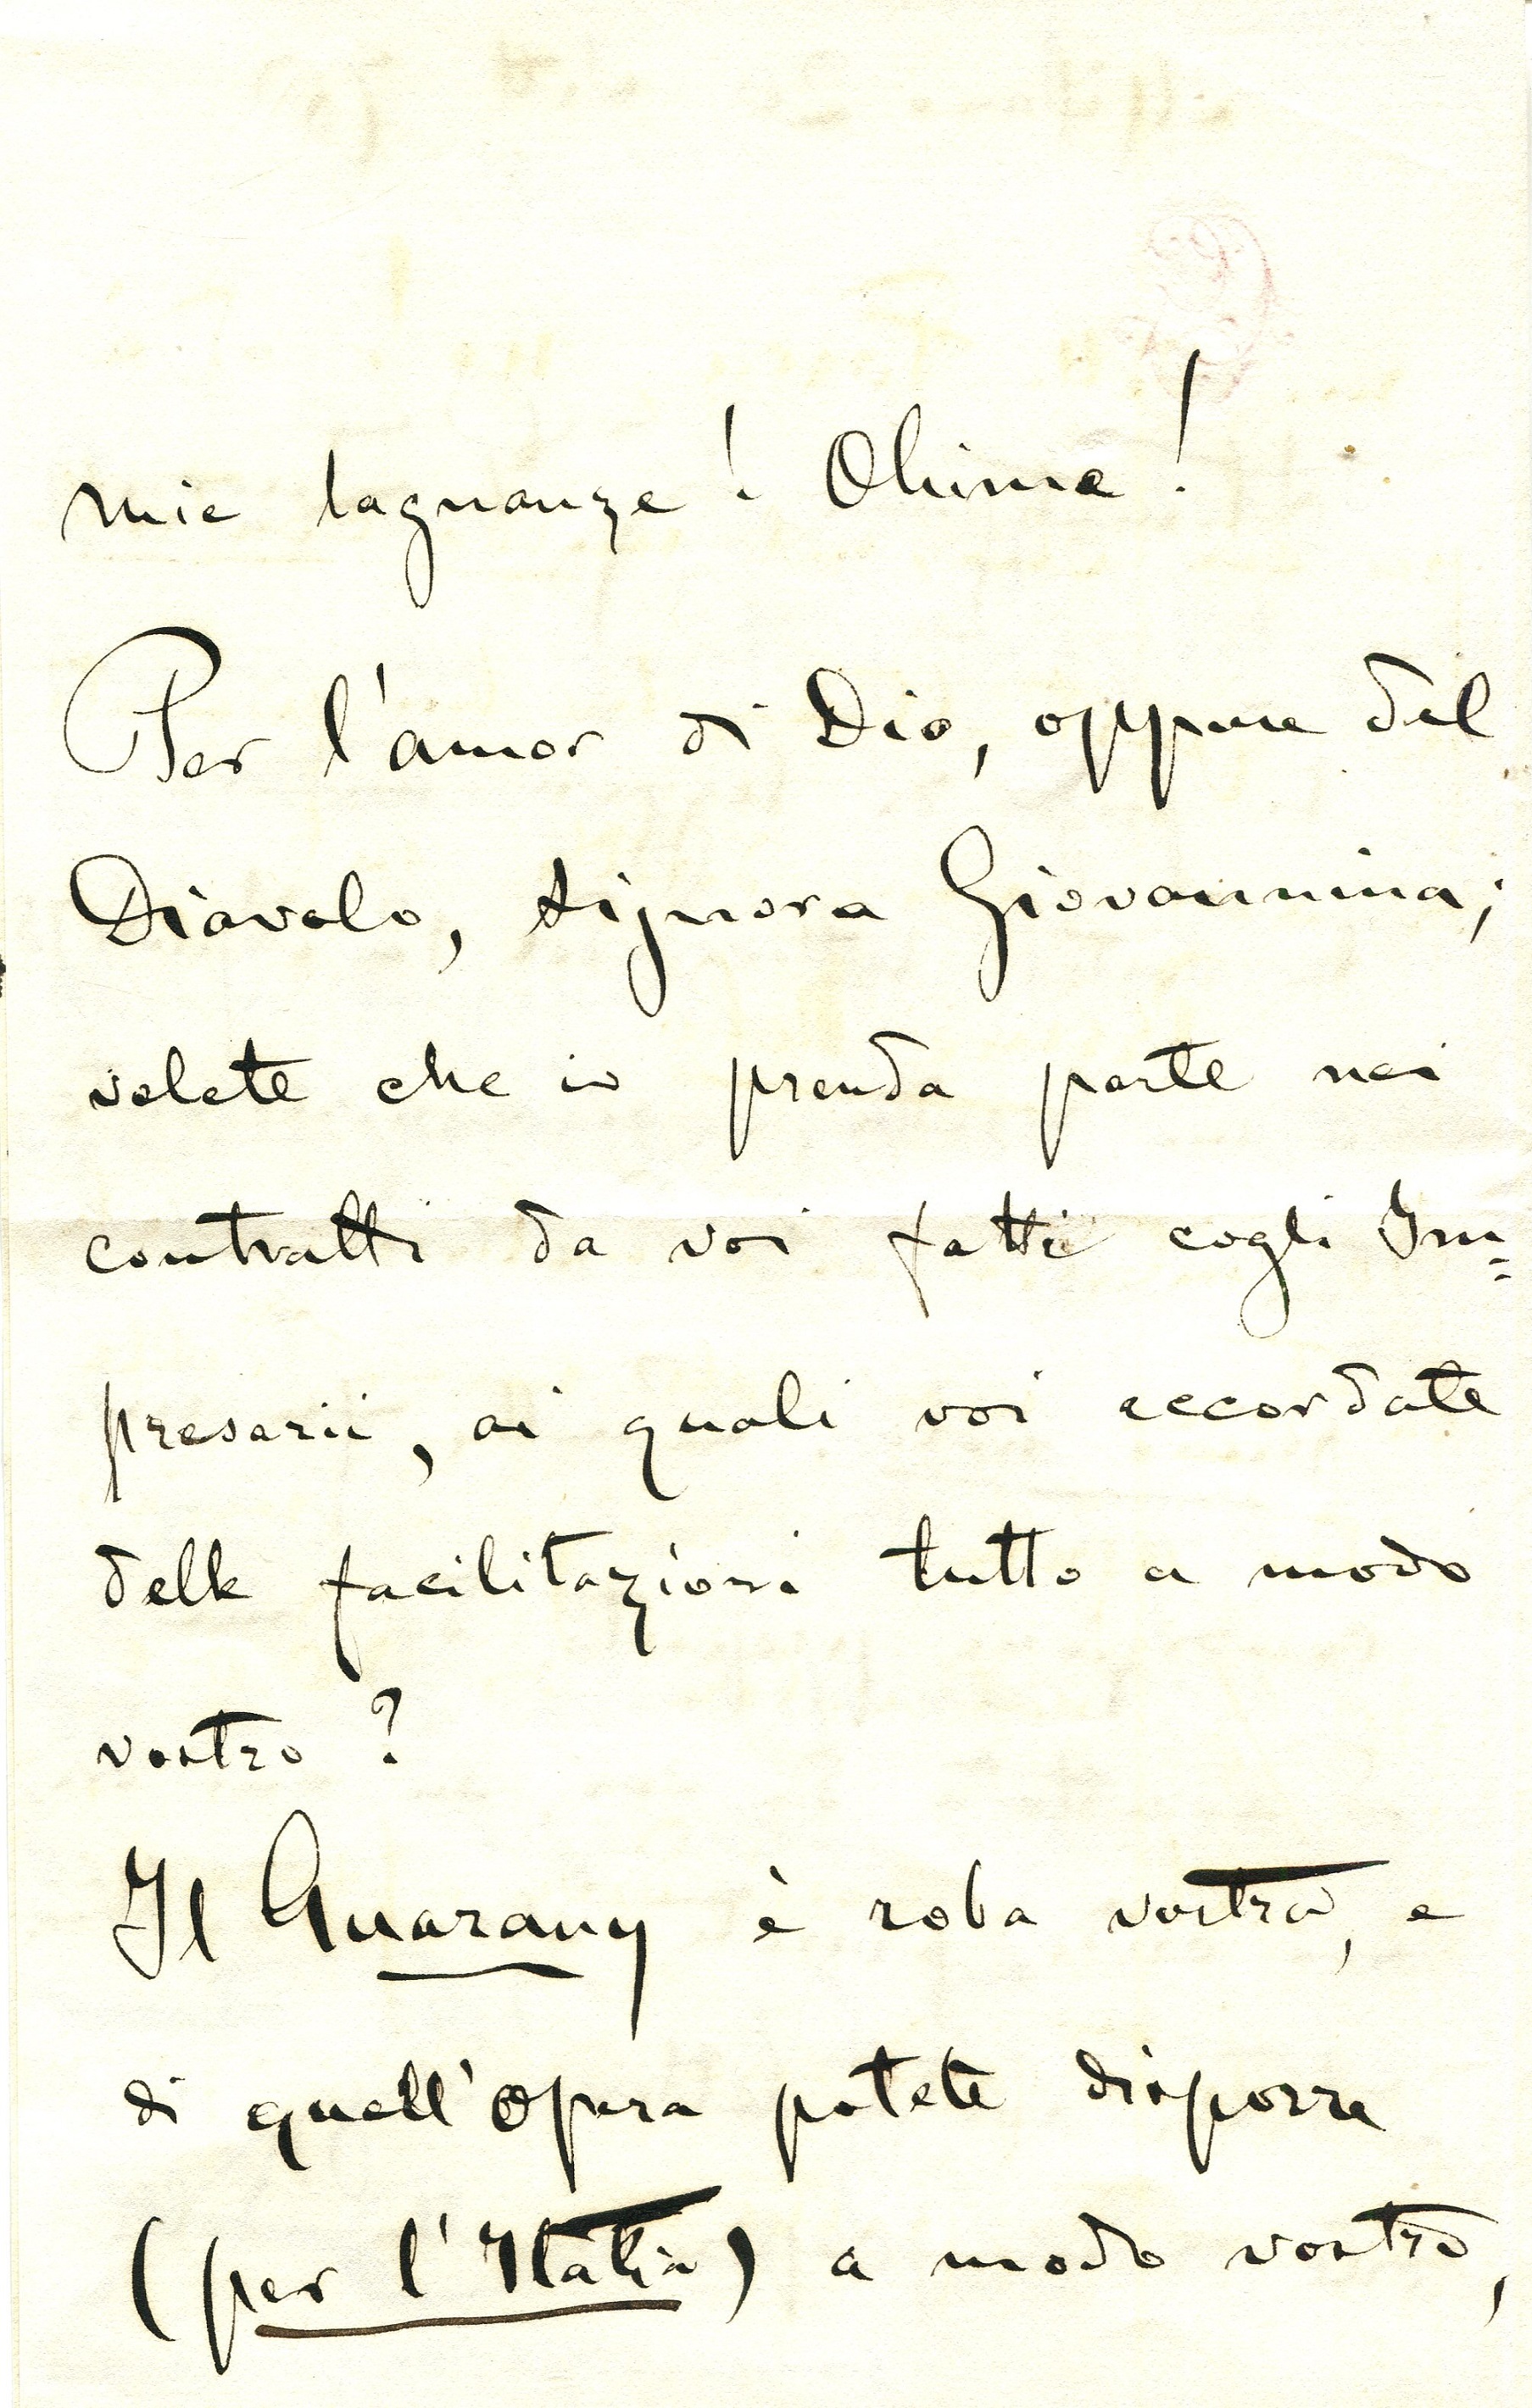 mie lagnanze! Ohime!
Per l'amor di Dio, oppure del
Diavolo, Signora Giovannina;
volete che io prenda parte nei
contratti da voi fatti cogli Im=
presarii, ai quali voi accordate
delle facilitazioni tutto a modo
vostro?
Il Guarany è roba vostra, e
di quell'Opera potete disporre
(per l'Italia) a modo vostro,